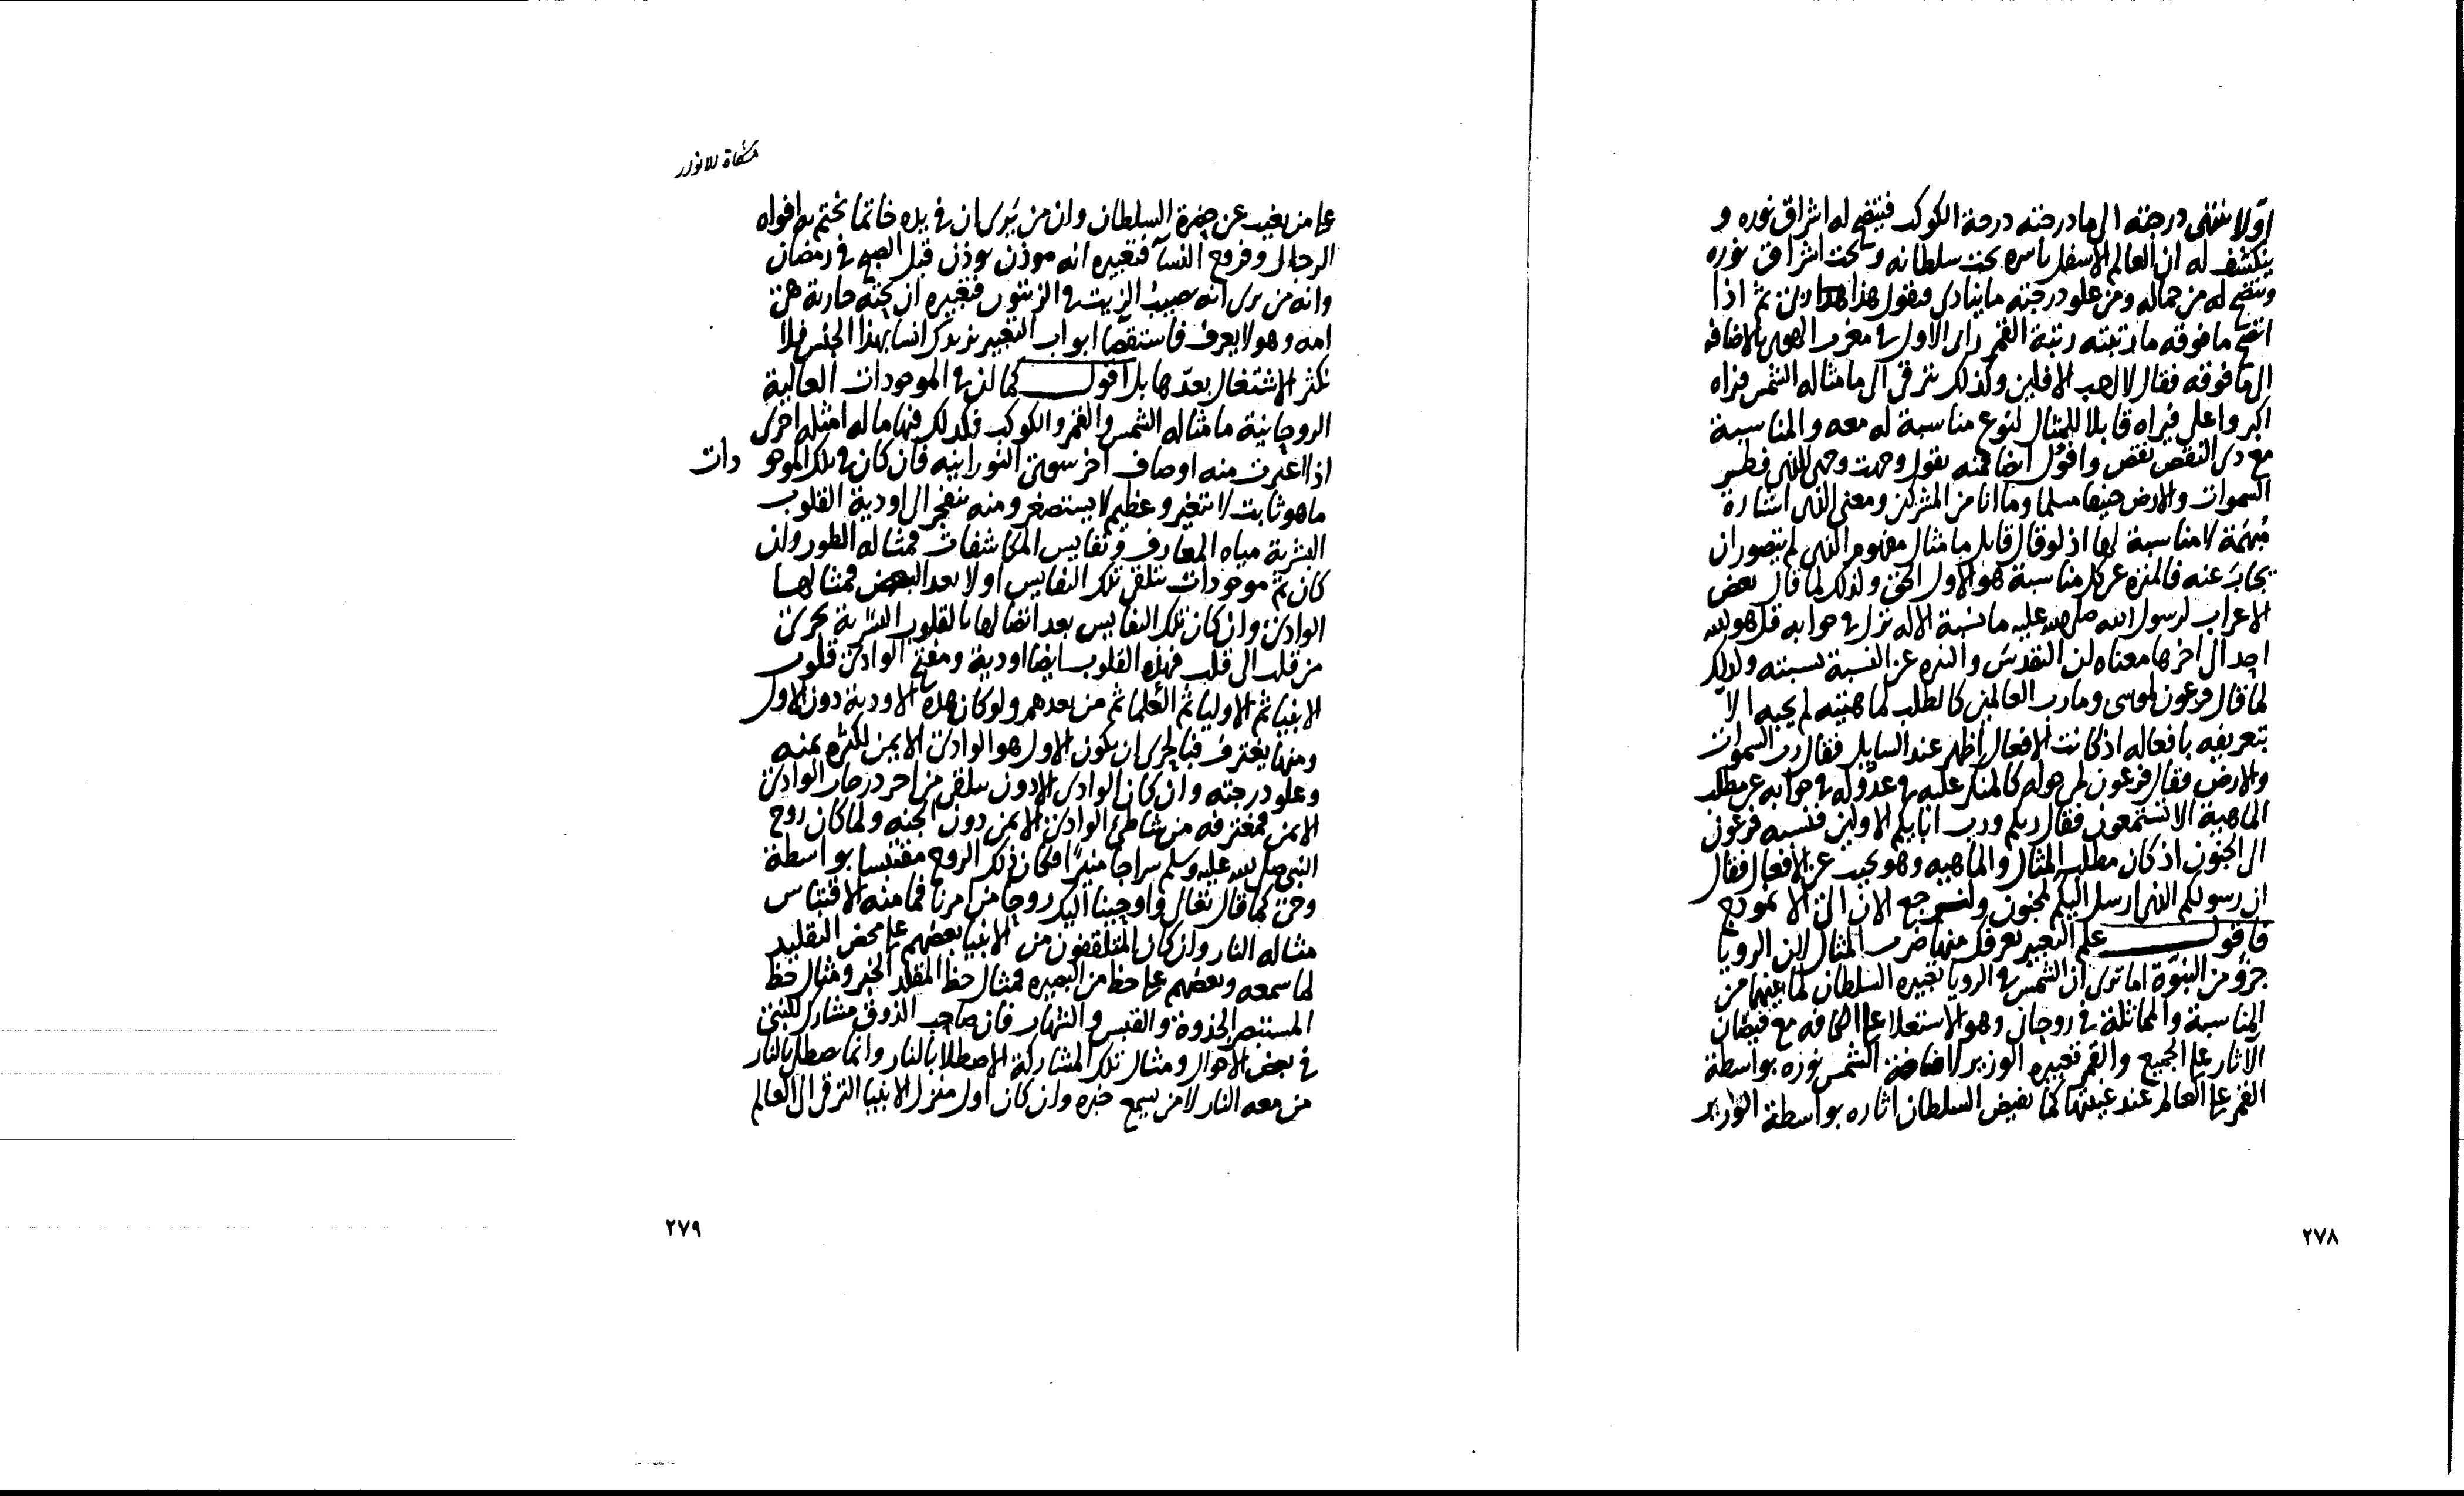 اوّلا ينتهى درجته الى ما درجته درجة الكوكب فيتضح له اشراق نوره و
ينكشف له ان العالم الاسفل باسره تحت سلطانه وتحت اشراق نوره
ويتضح له من جماله ومن علو درجته ما ينادى فيقول هذا ربى ثم اذا
اتضح ما فوقه مما رتبته رتبة القمر راى الاول فى مغرب الهوى بالاضافه
الى ما فوقه فقال لا احب الافلين وكذلك يترقى الى ما مثاله الشمس فيراه
اكبر واعلى فيراه قابلا للمثال لنوع مناسبة له معه والمناسبة
مع ذى النقص نقص وافول ايضا فمنه يقول وجهت وجهى للذى فطر
السموات والارض حنيفا مسلما وما انا من المشركين ومعنى الذى اشارة
مُبهَمَة لا مناسبة لها اذ لو قال قايل ما مثال مفهوم الذى لم يتصور ان
يجابَ عنه فالمنزه عن كل مناسبة هو الاول الحق ولذلك لما قال بعض
الاعراب لرسول الله صلى الله عليه ما نسبة الاله نزل فى جوابه قل هو الله
احد الى اخرها معناه ان التقدس والتنزه عن النسبة نسبته ولذلك
لما قال فرعون لموسى وما رب العالمين كالطلب لماهيته لم يجبه الا
بتعريفه بافعاله اذ كانت الافعال اظهر عند السايل فقال رب السموات
والارض فقال فرعون لمن حوله كالمنكر عليه فى عدوله فى جوابه عن مطلب
الماهية الا تستمعون فقال ربكم ورب ابايكم الاولين فنسبه فرعون
الى الجنون اذ كان مطلبه المثال والماهيه وهو يجيب عن الافعال فقال
ان رسولكم الذى ارسل اليكم لمجنون ولنرجع الان الى الانموذج
فاقول علم التعبير يعرفك منهاج ضرب المثال لان الرويا
جزؤ من النبوّة اما ترى ان الشمس فى الرويا تعبيره السلطان لما بينهما من
المناسبة والمماثلة فى روحانى وهو الاستعلا على الكافه مع فيضان
الاثار على الجميع والقمر تعبيره الوزير لافاضة الشمس نوره بواسطة
القمر على العالم عند غيبتها كما يفيض السلطان اثاره بواسطة الوزير
٢٧٨
مشكاة الانوار
على من يغيب عن حضرة السلطان وان من يَرى ان فى يده خاتما يختم به افواه
الرجال وفروج النسآ فتعبيره انه موذن يوذن قبل الصبح فى رمضان
وانه من يرى انه يصب الزيت فى الزيتون فتعبيره ان تحته جارية هى
امه وهو لا يعرف فاستقصا ابواب التعبير يزيدك انسا بهذا الجنس فلا
نكثر الاشتغال بعدّها بل اقول كما ان فى الموجودات العالية
الروحانية ما مثاله الشمس والقمر والكوكب فكذلك فيها ما له امثله اخرى
اذا اعتبرت منه اوصاف اخر سوى النورانيه فان كان فى تلك الموجودات
ما هو ثابت لا يتغير وعظيم لا يستصغر ومنه ينفجر الى اودية القلوب
البشرية مياه المعارف ونفايس المكاشفات فمثاله الطور وان
كان ثم موجودات تتلقى تلك النفايس اولا بعد البعض فمثالها
الوادى وان كان تلك النفايس بعد اتصالها بالقلوب البشرية تجرى
من قلب الى قلب فهذه القلوب ايضا اودية ومفتح الوادى قلوب
الانبيا ثم الاوليا ثم العلما ثم من بعدهم ولو كان هذه الاودية دون الاول
ومنها يغترف فبالحرى ان يكون الاول هو الوادى الايمن لكثره يمنه
وعلو درجته وان كان الوادى الادون يتلقى من اخر درجات الوادى
الايمن فمغترفه من شاطئ الوادى الايمن دون لجته ولما كان روح
النبى صلى الله عليه وسلم سراجا منيرًا وكان ذلك الروح مقتبسا بواسطة
وحى كما قال تعالى واوحينا اليك روحا من امرنا فما منه الاقتباس
مثاله النار وان كان المتلقفون من الانبيا بعضهم على محض التقليد
لما سمعه وبعضهم على حظ من البصيره فمثال حظ المقلد الخبر ومثال حظ
المستبصر الجذوة والقبس والشهاب فان صاحب الذوق مشارك للنبى
فى بعض الاحوال ومثال تلك المشاركة الاصطلا بالنار وانما يصطلى بالنار
من معه النار لا من يسمع خبره وان كان اول منزل الانبيا الترقى الى العالم
٢٧٩